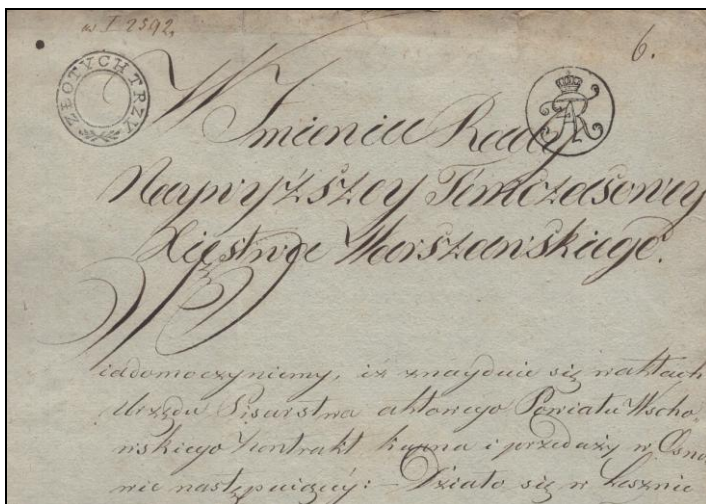 ad I 2592,
6.
ZŁOTYCH TRZY
AR
W Imieniu Rady
Naywyższey Tymczasowey
Xięstwa Warszawskiego.
Wiadomo czyniemy, iż znayduie się w aktach
Urzędu Pisarstwa aktowego Powiatu Wscho
wskiego Kontrakt kupna i przedaży w Osno
wie następuiącey: Działo się w Lesznie